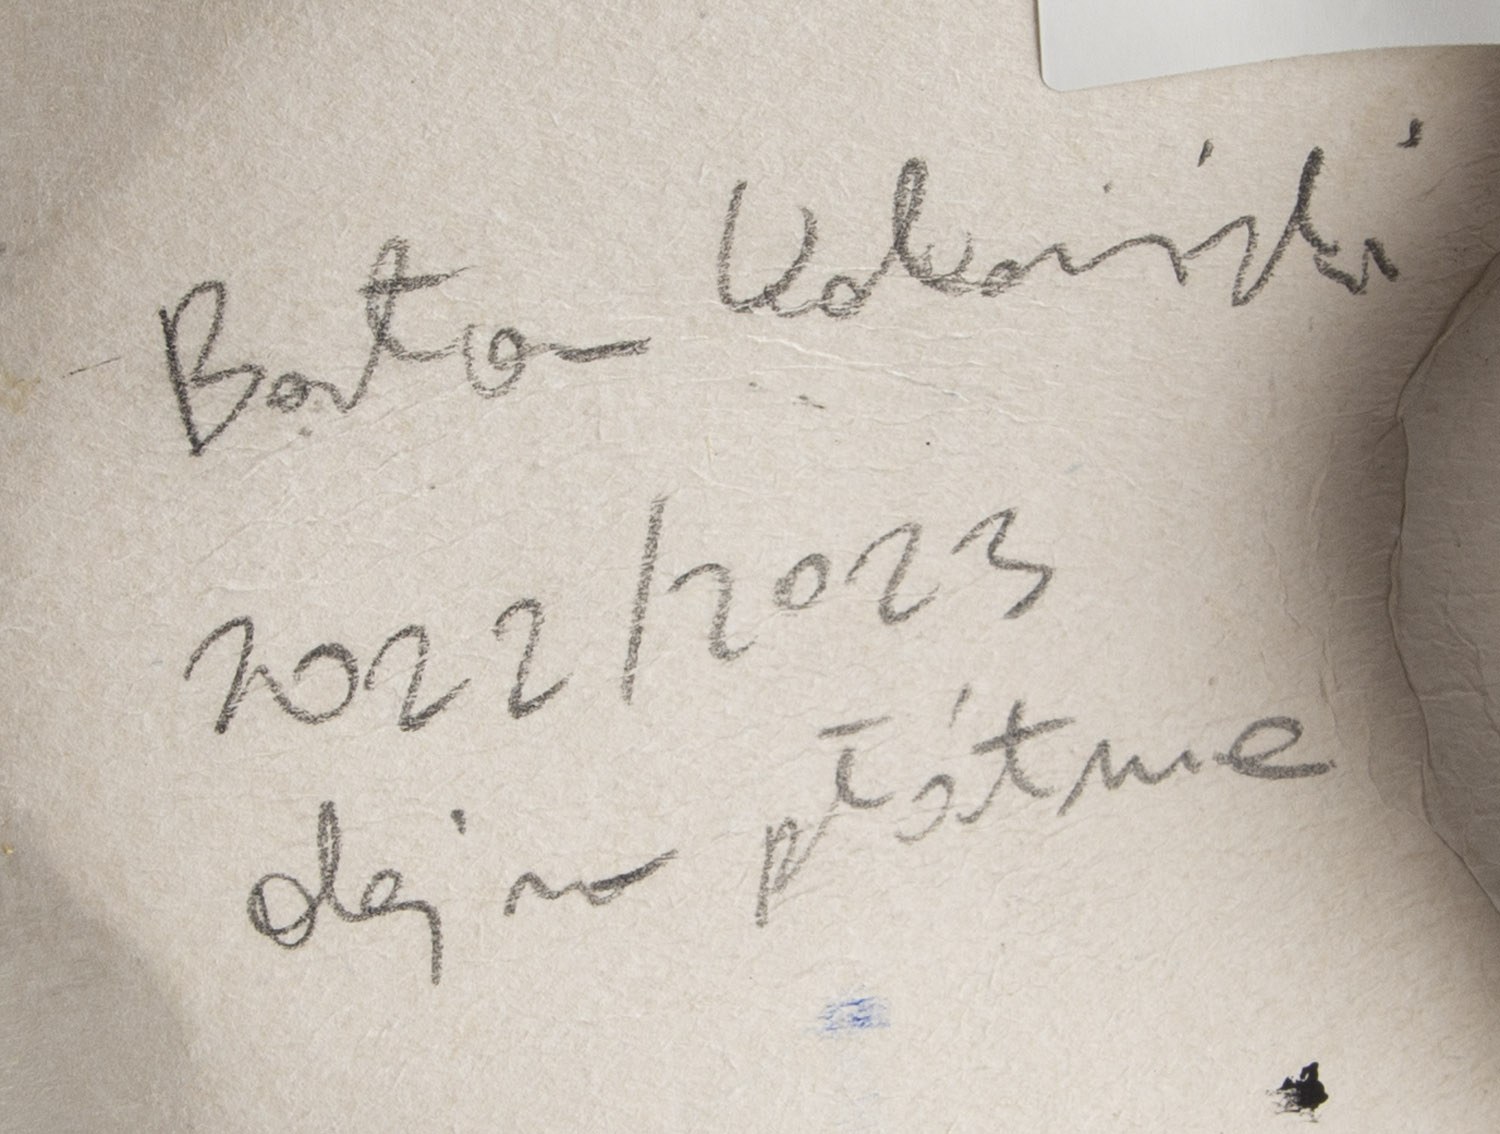 Bartosz Kokosiński
2022/2023
olej na płótnie